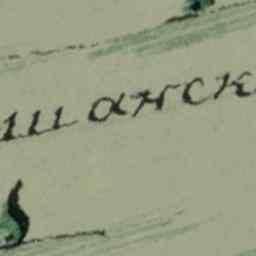 шанск